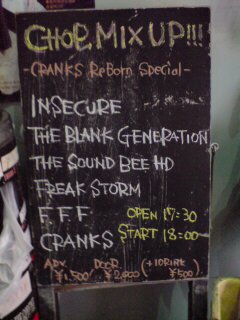 CHOP MIX UP!!!
-CRANKS ReBorn Special-
INSECURE
THE BLANK GENERATION
THE SOUND BEE HD
FREAK STORM
F.F.F OPEN 17:30
CRANKS START 18:00
ADV ¥1,500 DOOR ¥2,000 (+1DRINK ¥500)